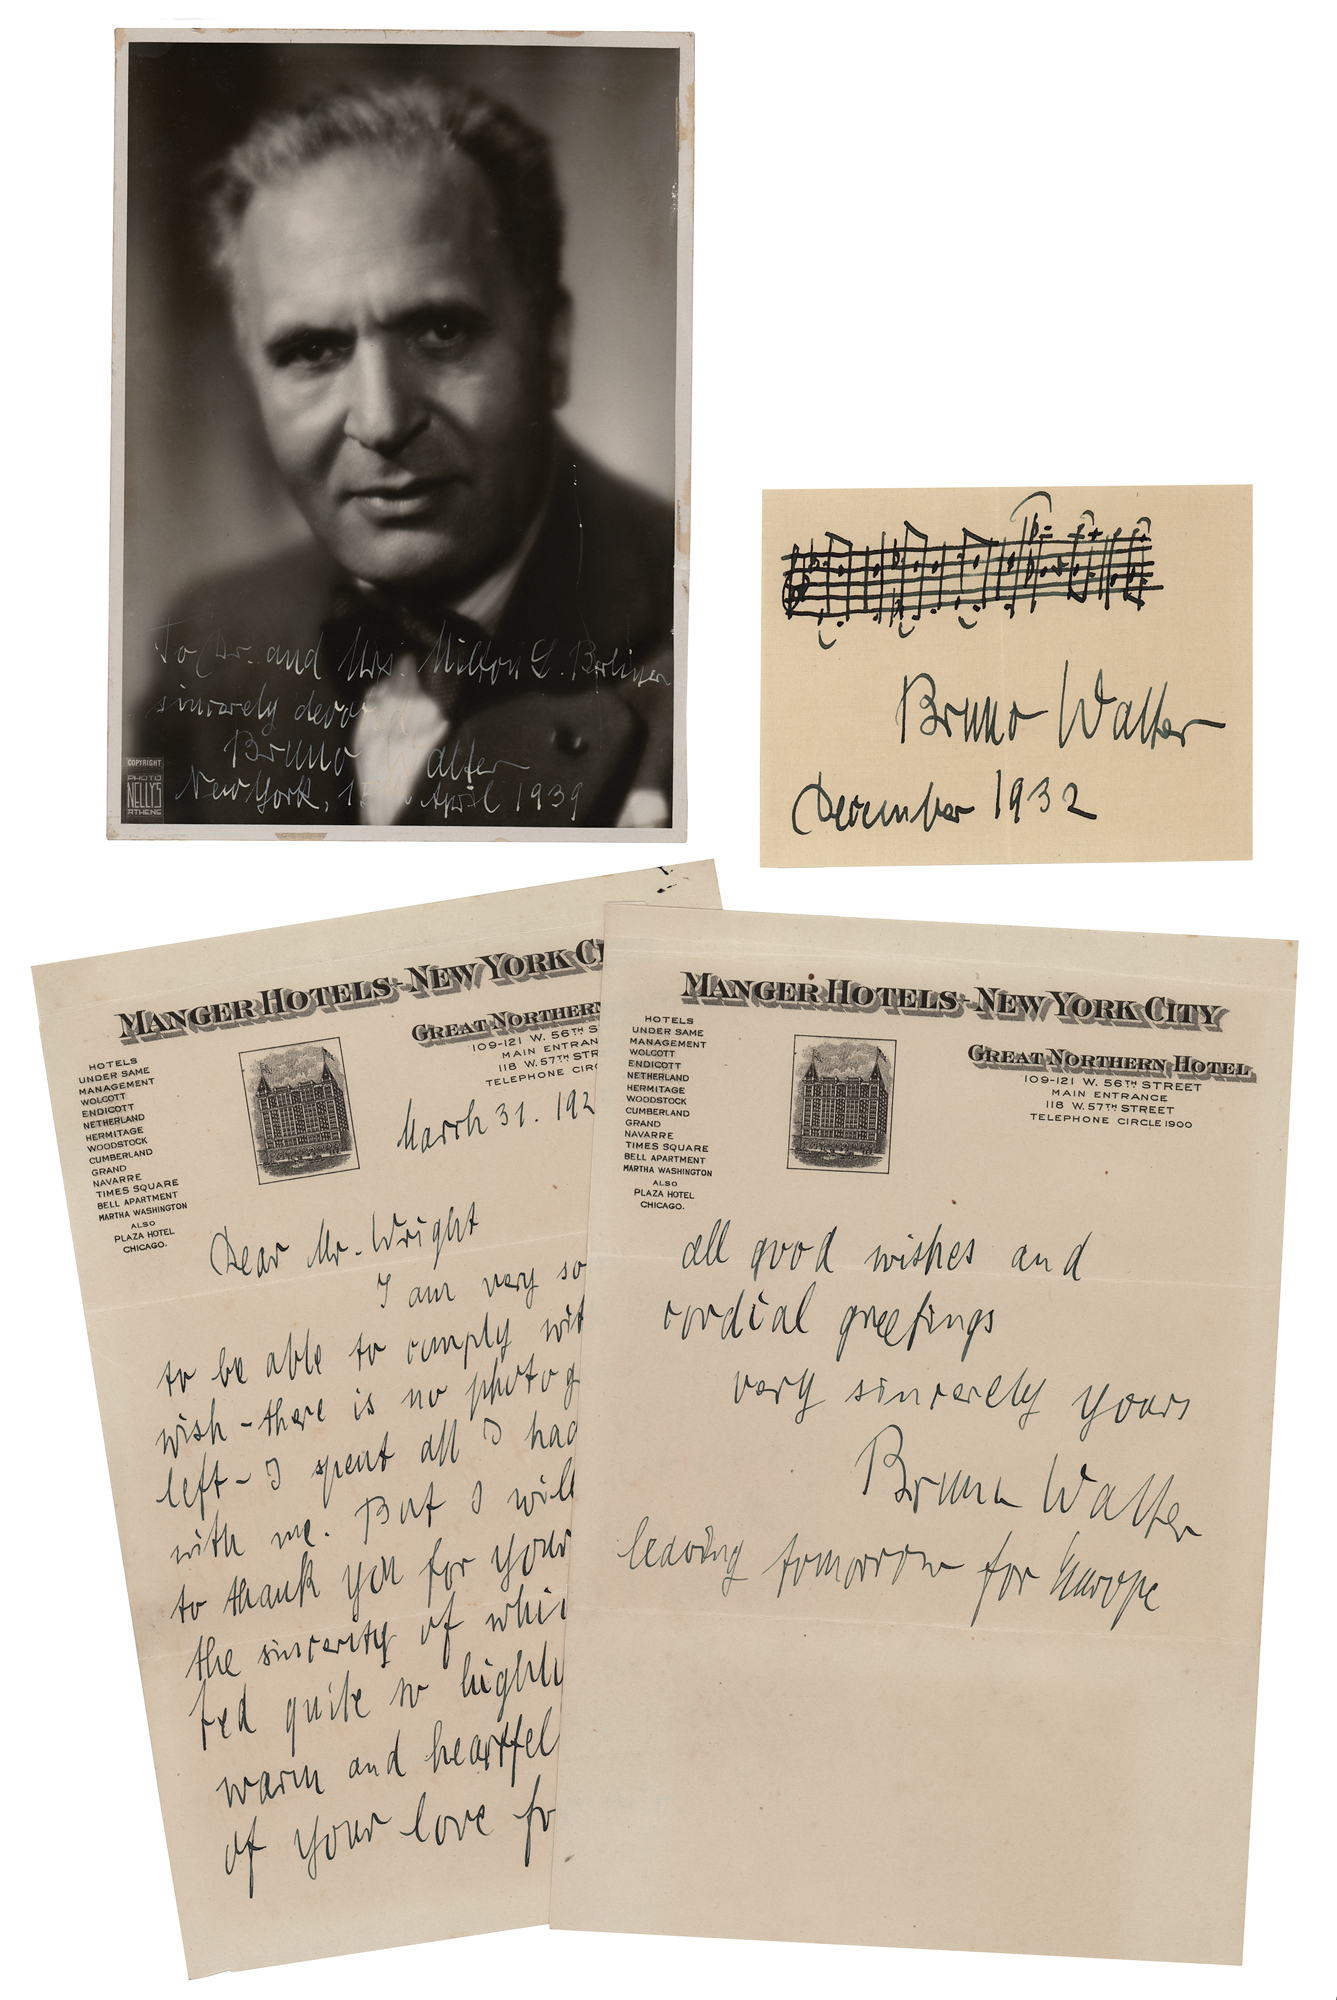 To Dr. and Mrs. Milton L. Berliner
sincerely devoted
Bruno Walter
New York, 15th April 1939
COPYRIGHT
PHOTO
NELLY'S
ATHENS
Bruno Walter
December 1932
MANGER HOTELS - NEW YORK CI
GREAT NORTHERN
109-121 W. 56TH S
MAIN ENTRAN
118 W. 57TH STR
TELEPHONE CIRC
HOTELS
UNDER SAME
MANAGEMENT
WOLCOTT
ENDICOTT
NETHERLAND
HERMITAGE
WOODSTOCK
CUMBERLAND
GRAND
NAVARRE
TIMES SQUARE
BELL APARTMENT
MARTHA WASHINGTON
ALSO
PLAZA HOTEL
CHICAGO.
March 31. 192
Dear Mr. Wright
I am very so
to be able to comply wit
wish - there is no photog
left - I spent all I had
with me. But I will
to thank you for your
the sincerity of whi
ted quite so highly
warm and heartfel
of your love fo
MANGER HOTELS - NEW YORK CITY
GREAT NORTHERN HOTEL
109-121 W. 56TH STREET
MAIN ENTRANCE
118 W. 57TH STREET
TELEPHONE CIRCLE 1900
HOTELS
UNDER SAME
MANAGEMENT
WOLCOTT
ENDICOTT
NETHERLAND
HERMITAGE
WOODSTOCK
CUMBERLAND
GRAND
NAVARRE
TIMES SQUARE
BELL APARTMENT
MARTHA WASHINGTON
ALSO
PLAZA HOTEL
CHICAGO.
all good wishes and
cordial greetings
very sincerely yours
Bruno Walter
leaving tomorrow for Europe